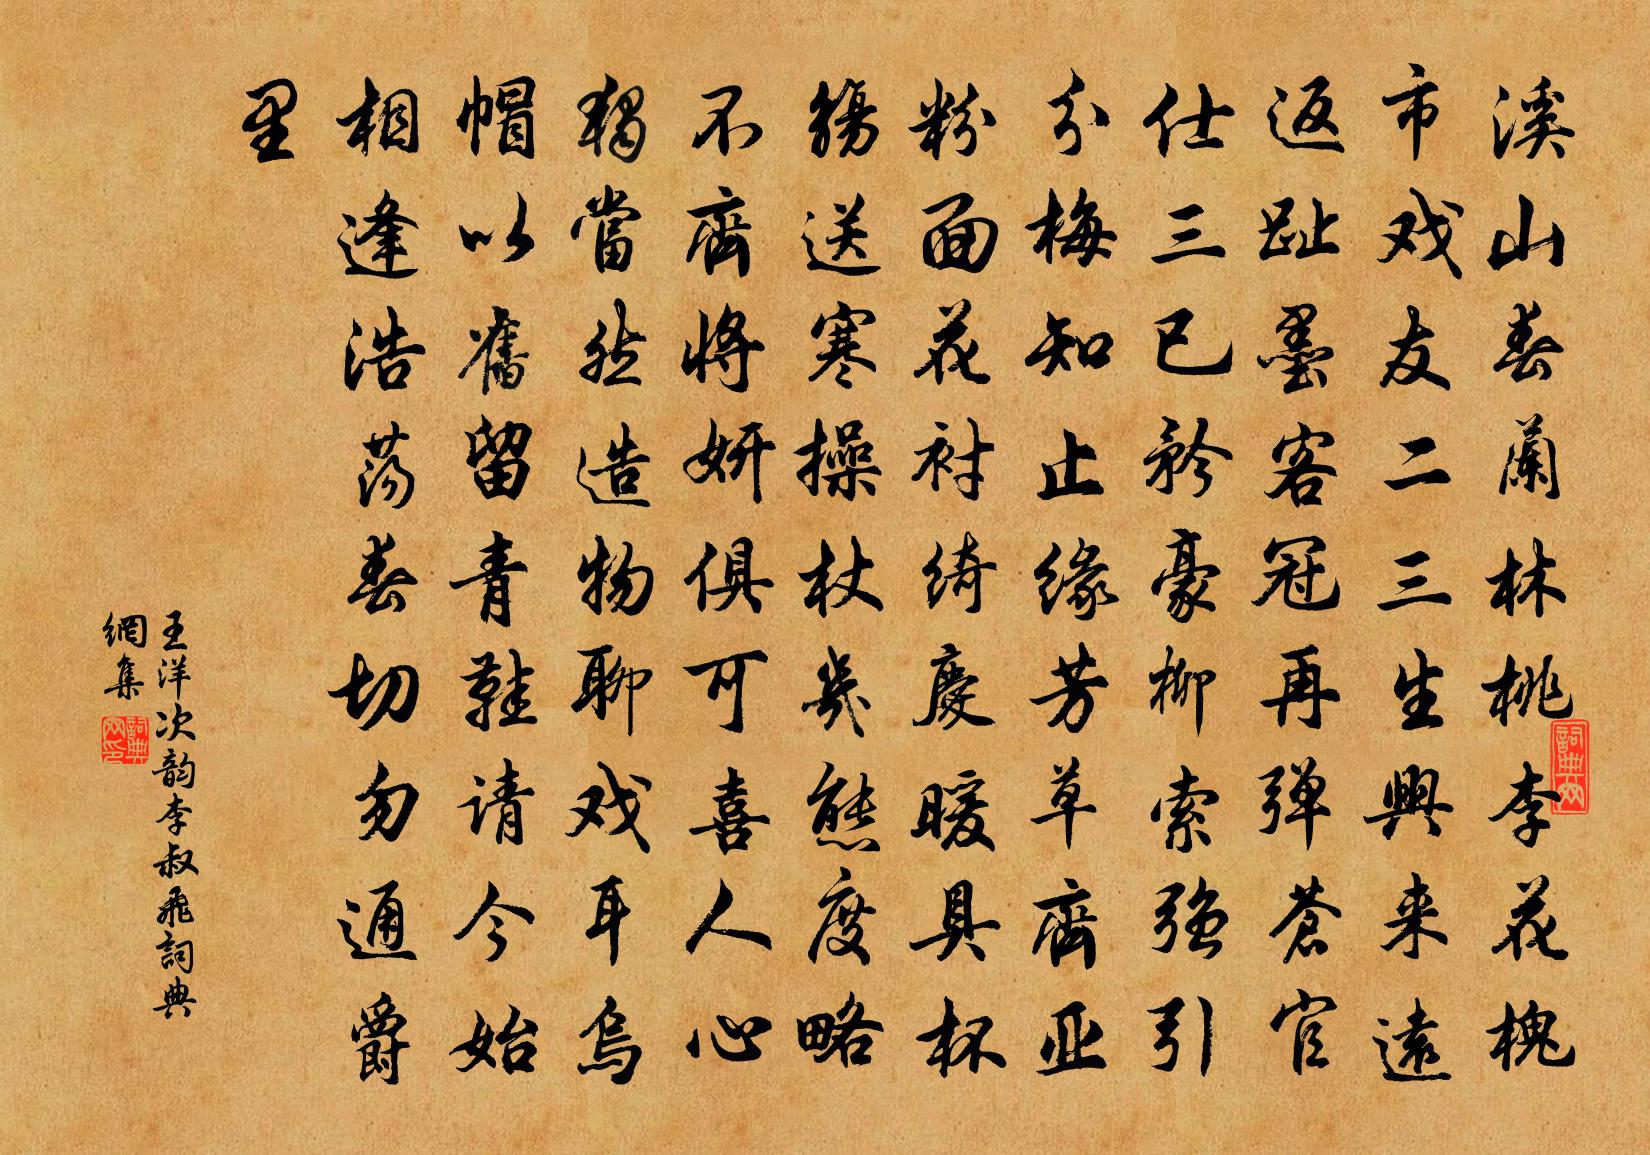 溪山春蘭林桃李花槐
市戏友二三生興来遠
返趾墨客冠再弹苍官
仕三已矜豪柳索强引
分梅知止缘芳草齊亚
粉面花衬绮慶暖具杯
觞送寒操杖幾熊度略
不齊将妍俱可喜人心
独當然造物聊戏耳烏
帽以舊留青鞋请今始
相逢浩荡春切勿通爵
里
王洋次韵李叔飛詞典
網集
詞典网
詞典网印